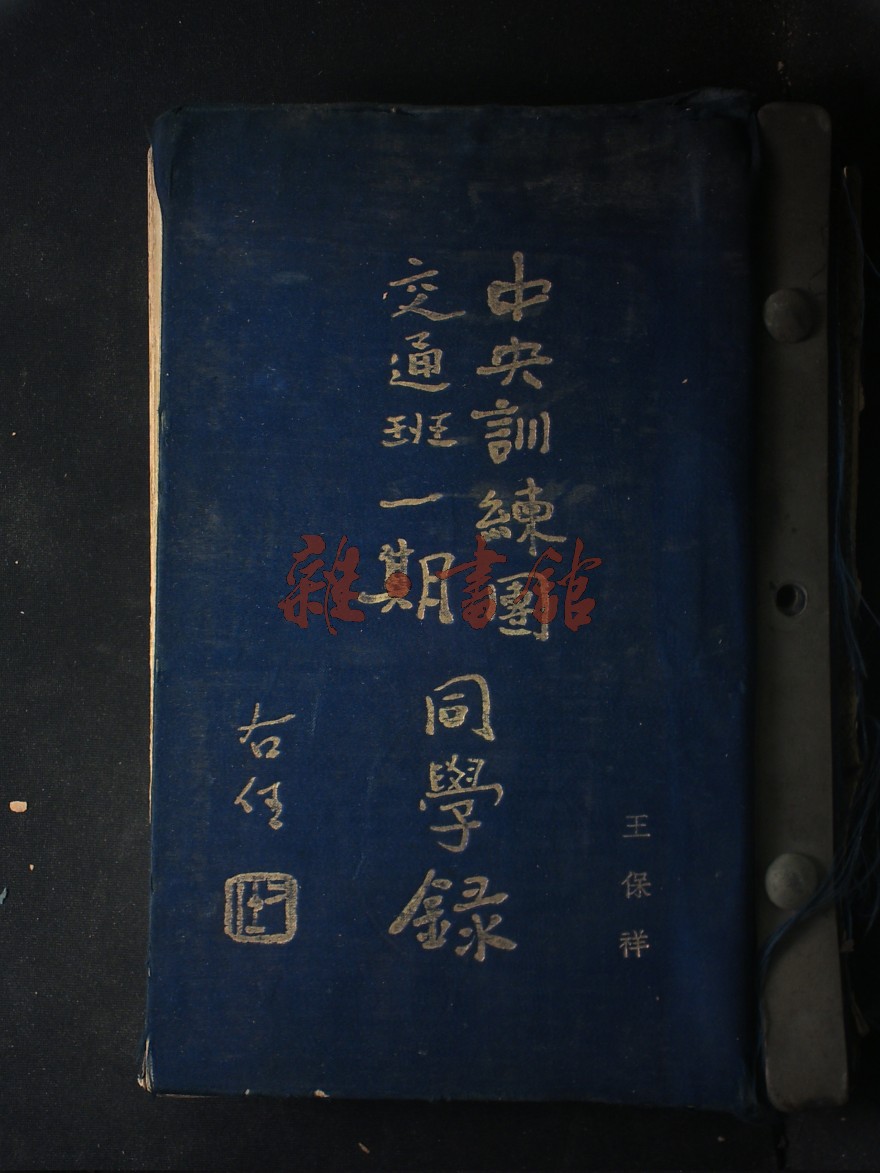 中央訓練團
交通班一期
同學錄
右任
王保祥
雜·書館